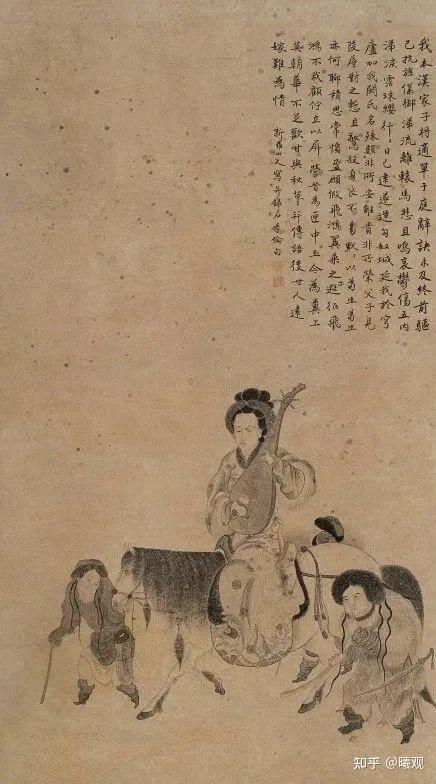 我本漢家子將適單于庭辭訣未及終前驅
已抗旌僕御涕流離轅馬悲且鳴哀鬱傷五内
涕淚霑珠纓行〻日已遠遂造匈奴城延我於穹
廬加我閼氏名殊類非所安雖貴非所榮父子見
陵辱對之慙且驚殺身良不易默〻以苟生苟生
亦何聊積思常憤盈願假飛鴻翼乘之以遐征飛
鴻不我顧佇立以屏營昔為匣中玉今為糞上
英朝華不足歡甘與秋草并傳語後世人遠
嫁難為情 新羅山人寫并錄石季倫句
知乎 @曦观